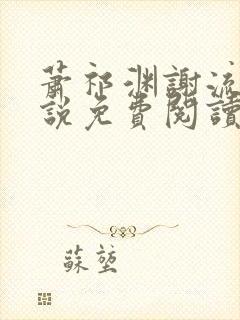 蕭祁淵謝流
說免費閱讀
蘇堃